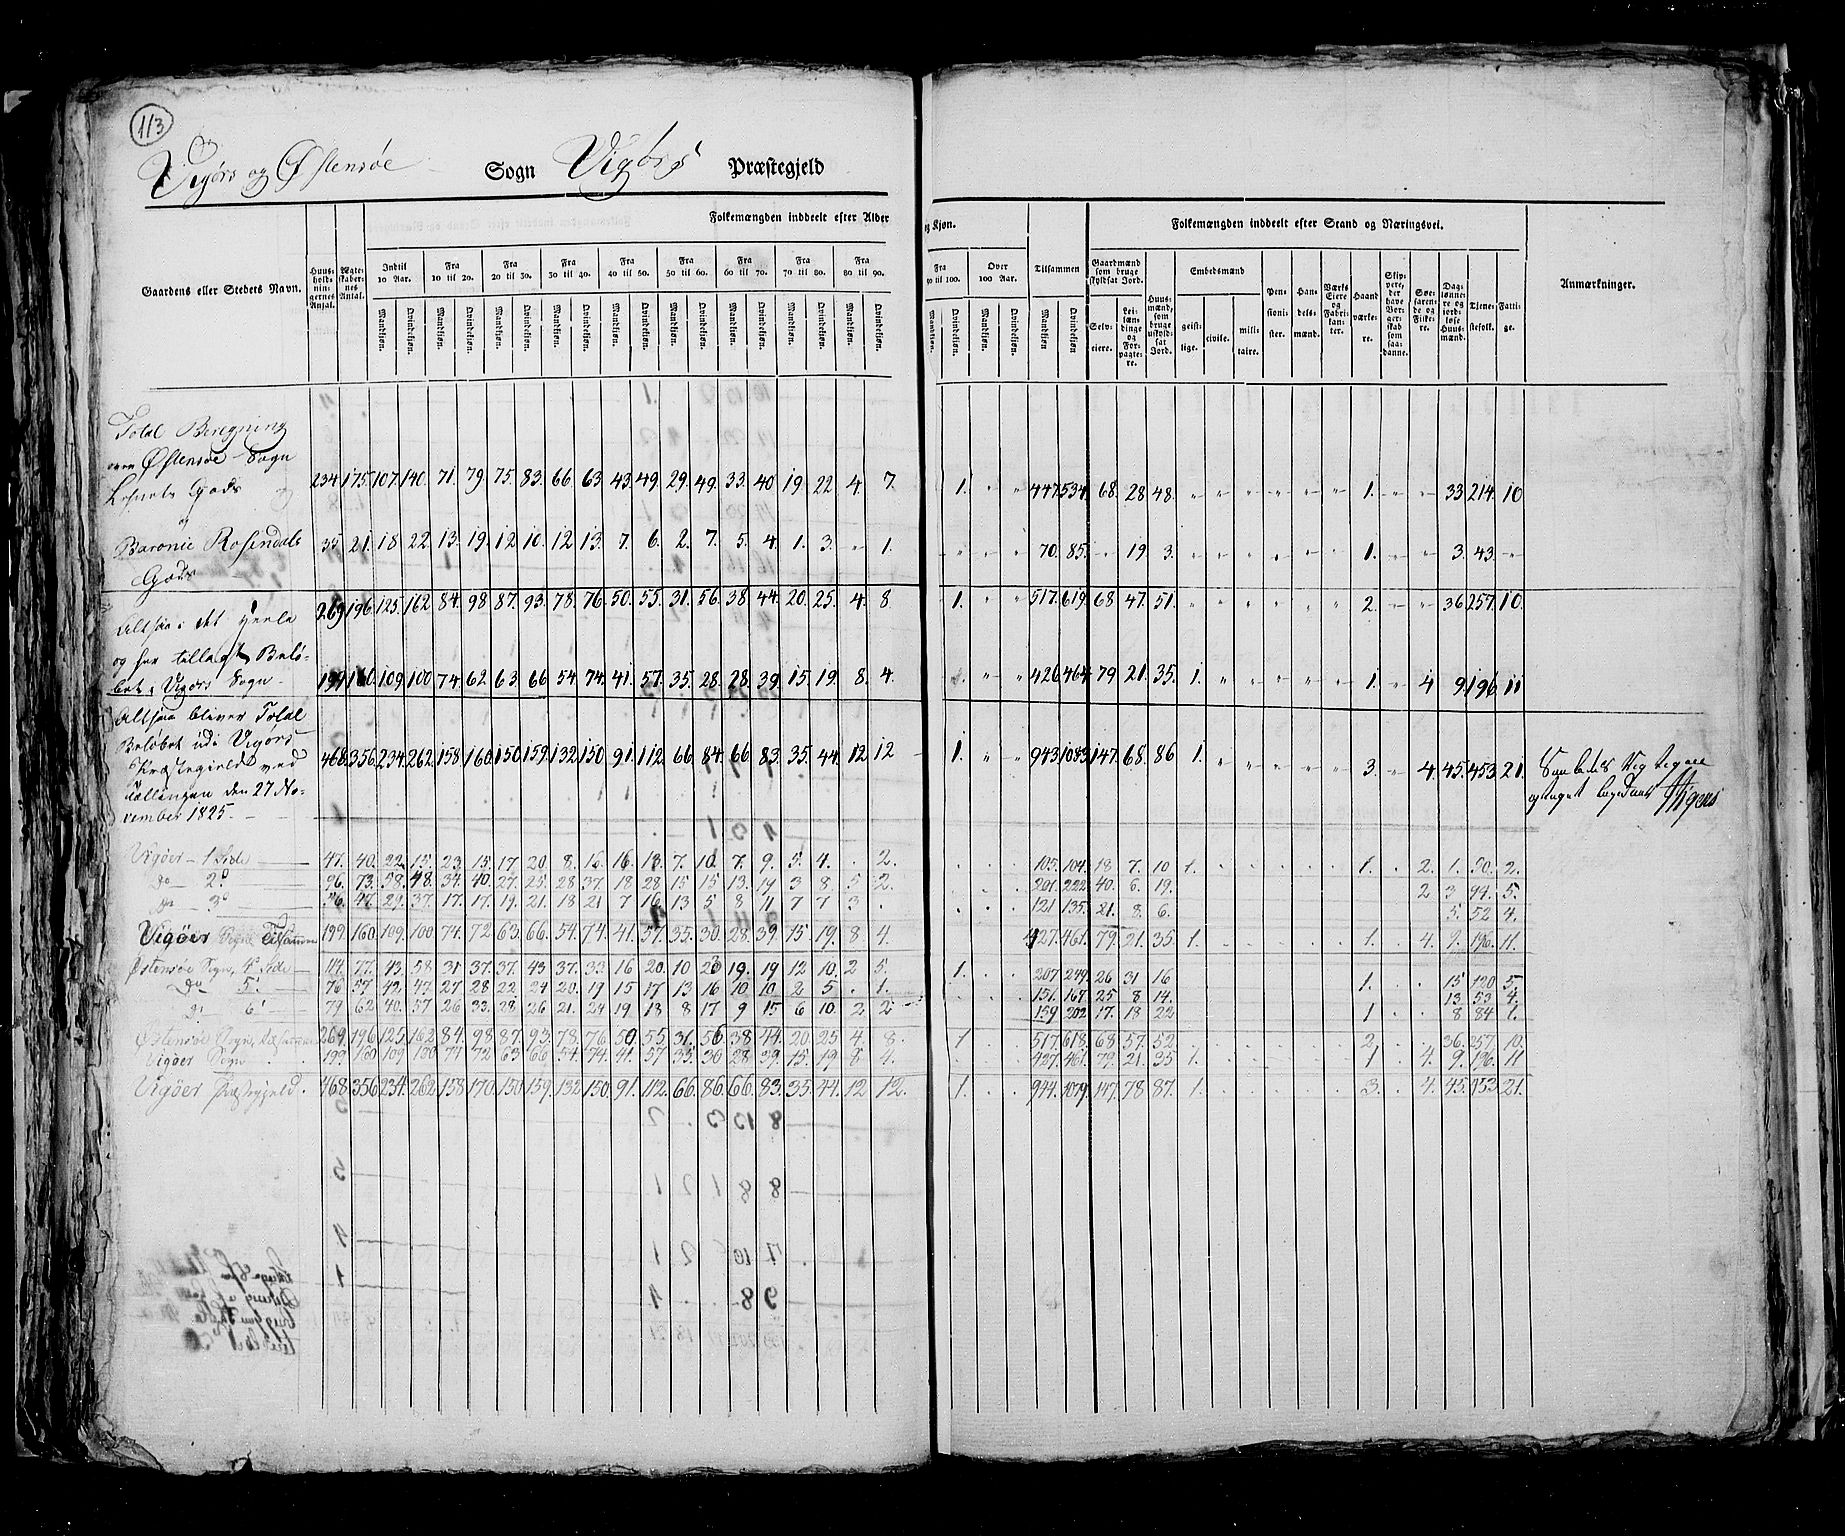 113
Vigørs og Østensøe Sogn Vigørs Præstegjeld
Folkemængden inddeelt efter Alder og Kjøn.
Folkemængden inddeelt efter Stand og Næringsvei.
Gaardens eller Stedets Navn.
Huusholdningernes Antal.
Ægteskabernes Antal.
Indtil 10 Aar.
Fra 10 til 20.
Fra 20 til 30.
Fra 30 til 40.
Fra 40 til 50.
Fra 50 til 60.
Fra 60 til 70.
Fra 70 til 80.
Fra 80 til 90.
Fra 90 til 100.
Over 100 Aar.
Tilsammen
Mandkjøn. Qvindekjøn.
Gaardmænd som bruge skyldsat Jord.
Selveiere.
Leilændinge og Forpagtere.
Huusmænd, som bruge uskyldsat Jord.
Embedsmænd
geistlige.
civile.
militaire.
Pensionister.
Handelsmænd.
Værks Eiere og Fabrikanter.
Haandværkere.
Skippere, der have Borgerskab som saadanne.
Søefarende og Fiskere.
Daglønnere og jordløse Huusmænd.
Tjenestefolk.
Fattige.
Anmærkninger.
Total Beregning
over Østensøe Sogn
Gods 234 175. 107. 140. 71. 79. 75. 83. 66 63 43. 49. 29. 49. 33. 40 19. 22. 4. 7 1. " " 447. 534. 68. 28 48. " " " " " " 1. " " 33 214. 10
og
Baronie Rosendals 35 21. 18 22. 13. 19. 12 10. 12 13. 7. 6. 2. 7. 5. 4. 1. 3. " 1. " " " 70. 85. " 19 3. " " " " " " 1. " " 3. 43. "
Gods
269 196. 125. 162. 84. 98 87. 93. 78. 76. 50. 55. 31. 56. 38 44. 20. 25. 4. 8 1. " " 517. 619. 68 47. 51. " " " " " " 2. " " 36 257. 10.
Altsaa i det heele
og her tillagt Belø-
bet i Vigørs Sogn 199 160. 109. 100. 74. 62. 63. 66 54 74. 41. 57. 35. 28. 28. 39. 15. 19. 8. 4. " " 426. 464. 79 21. 35. 1. " " " " " 1. " 4 9. 196. 11
Altsaa bliver Total
Beløbet udi Vigørs
Præstegield ved 468. 356. 234. 262. 158. 160. 150. 159. 132. 150. 91. 112. 66 84. 66 83. 35. 44. 12 12 1. " " 943. 1083. 147. 68. 86 1. " " " " " 3. " 4. 45. 453. 21.
Tællingen den 27 No-
vember 1825.
Vigøer 1 Side 47. 40. 22. 15. 23. 15. 17. 20. 8. 16. 16. 13. 7. 10. 7. 9. 5. 4. . 2. 105. 104. 18 7. 10 1. 1. 2. 1. 50. 2.
Do 2d 96. 73. 58. 48. 34. 40. 27. 25. 28 37. 18 28 15 15 13. 19 3 8. 5 2. 201. 222. 40. 6. 19. 2 3 94. 5.
Do 3d 56. 47. 29. 37. 17. 17. 19. 21. 18 21 7 16 13 5 8 11 7 7 3 . 121 135. 21. 8. 6. 5. 52 4.
Vigøer Sogn Tilsammen 199. 160. 109. 100. 74. 72. 63. 66. 54. 74. 41. 57. 35. 30. 28. 39. 15 19. 8 4. 427. 461. 79. 21. 35. 1. 1. 4. 9. 196. 11.
Østensøe Sogn, 4de Side 114. 77. 43. 58 31 37. 37. 43 37. 33 16 20. 10 23 19. 19 12 10. 2 5. 1. 207 249 26 31 16 1. 15 120 5.
Do 5 76 57 42. 47. 27 28 22 24 20. 19 15 17 13 16 10 10 2 5. . 1. 151. 167. 25 8 14. 13. 53 4.
Do 6 79 62 40. 57 26 33. 28 26 21. 24 19 18 8 17 9 15 6 10. 2 2 159 202 17. 18 22 1 8 84 1.
Østensøe Sogn, Tilsammen 269. 196. 125. 162. 84. 98. 87. 93. 78. 76. 50. 55. 31. 56. 38 44. 20. 25 4. 8. 1 517. 618. 68 57. 52. 2. 36. 257. 10.
Vigøer Sogn 199. 160 109 100 74 72 63 66 54. 74. 41. 57 35. 30 28 39 15. 19 8 4. 427. 461. 79. 21. 35 1. 1 4. 9. 196. 11
Vigøer Præstegjeld. 468. 356 234. 262. 158 170. 150. 159. 132 150. 91. 112. 66 86. 66 83. 35. 44. 12 12. 1. 944. 1079. 147. 78. 87. 1. 3. 4. 45. 453. 21.